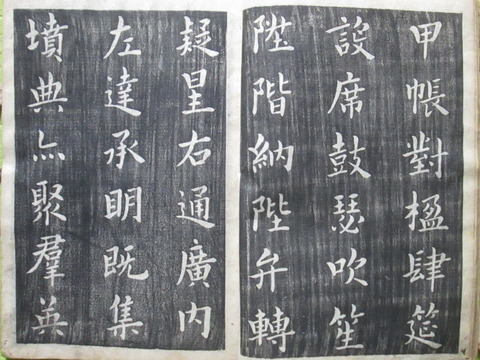 甲帳對楹肆筵
設席鼓瑟吹笙
陞階納陛弁轉
疑星右通廣内
左達承明既集
墳典亦聚羣英